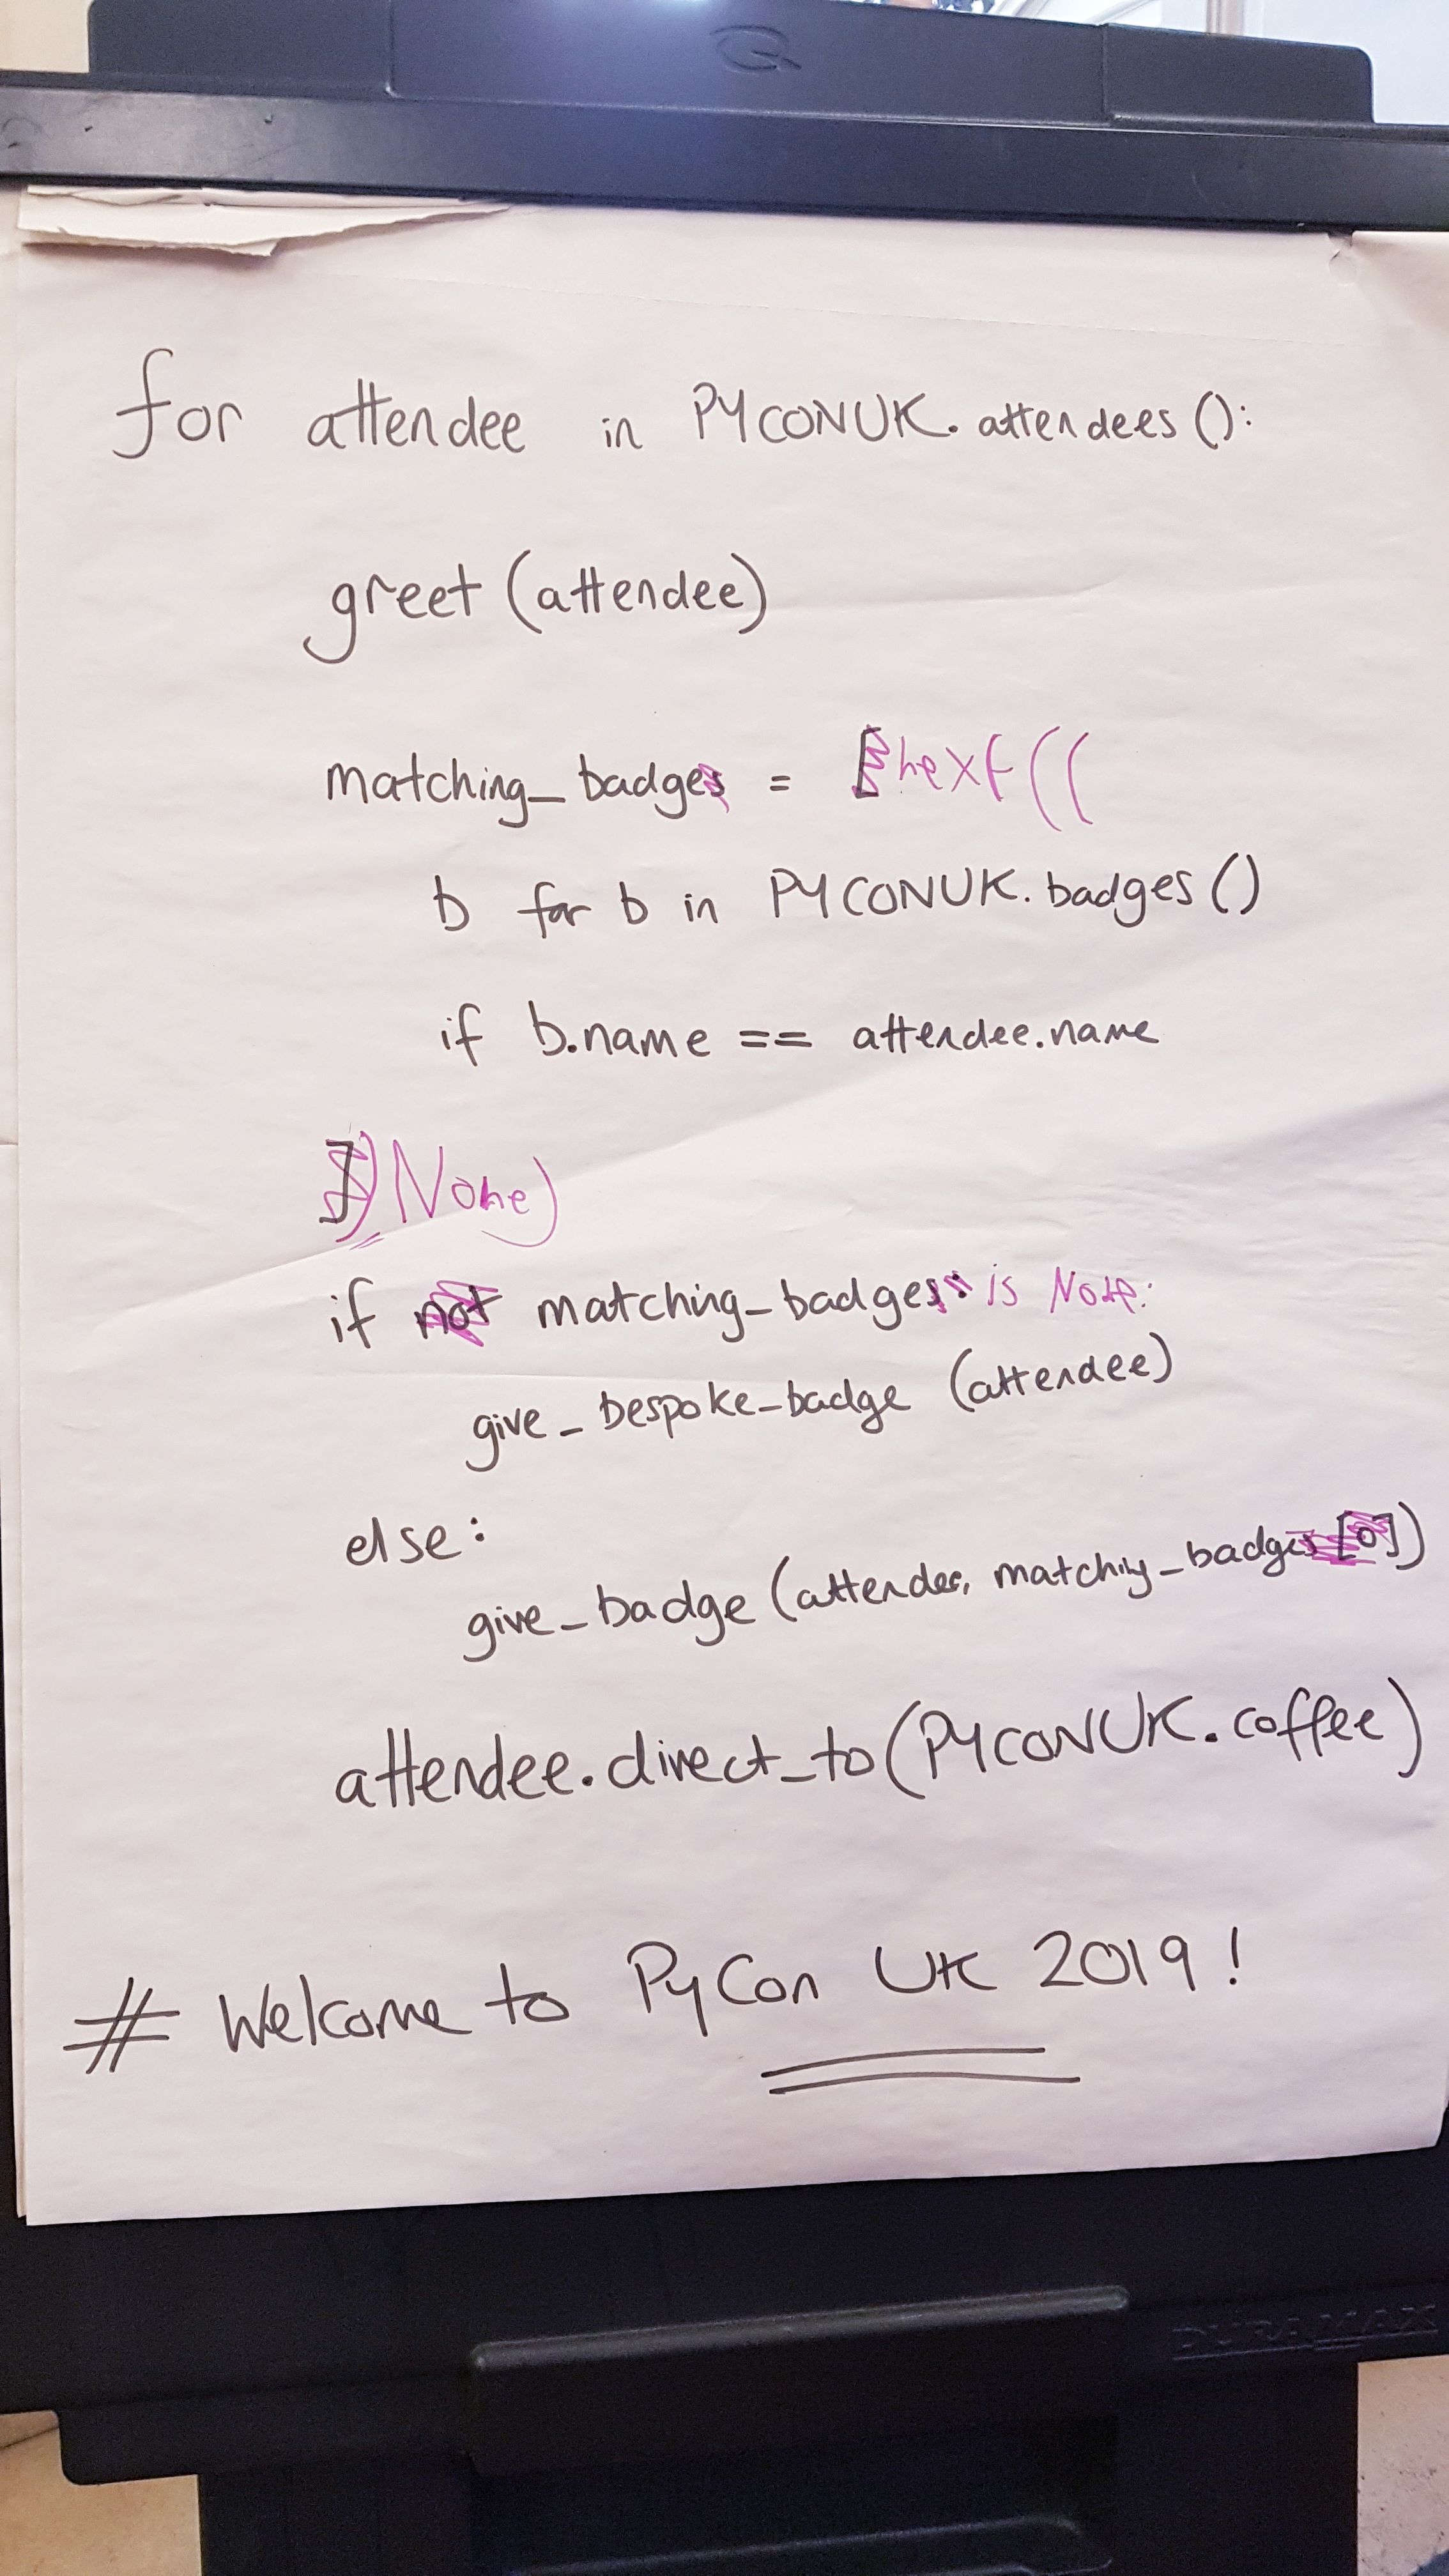 for attendee in PYCONUK.attendees():
greet (attendee)
matching_badge = next((
b for b in PYCONUK.badges()
if b.name == attendee.name
)None)
if matching_badge is None:
give_bespoke_badge (attendee)
else:
give_badge (attendee, matching_badge)
attendee.direct_to(PYCONUK.coffee)
# Welcome to PyCon UK 2019!
DURAMAX